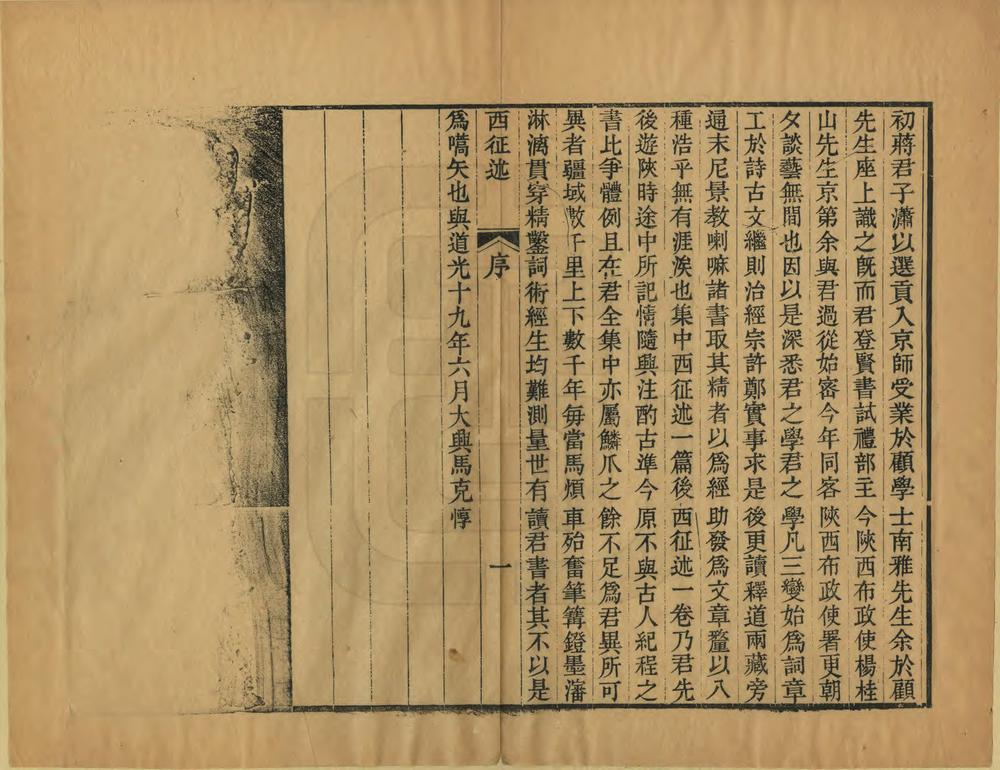 初蔣君子瀟以選貢入京師受業於顧學士南雅先生余於顧
先生座上識之旣而君登賢書試禮部主今陝西布政使楊桂
山先生京第余與君過從始密今年同客陝西布政使署更朝
夕談藝無間也因以是深悉君之學君之學凡三變始爲詞章
工於詩古文繼則治經宗許鄭實事求是後更讀釋道兩藏旁
通末尼景教喇嘛諸書取其精者以爲經助發爲文章鼇以八
種浩乎無有涯涘也集中西征述一篇後西征述一卷乃君先
後遊陝時途中所記情隨興注酌古準今原不與古人紀程之
書比爭體例且在君全集中亦屬鱗爪之餘不足爲君異所可
異者疆域數千里上下數千年每當馬煩車殆奮筆篝鐙墨瀋
淋漓貫穿精鑿詞術經生均難測量世有讀君書者其不以是
西征述 序 一
爲嚆矢也與道光十九年六月大興馬克惇